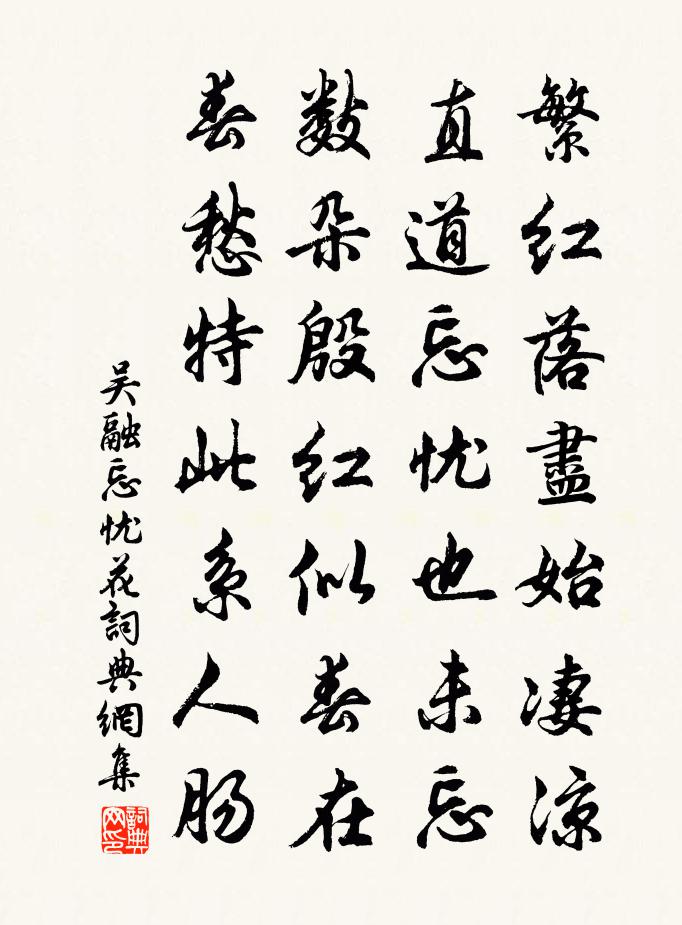 繁红落盡始凄凉
直道忘忧也未忘
数朵殷红似春在
春愁特此系人肠
吴融忘忧花詞典網集
詞典网印